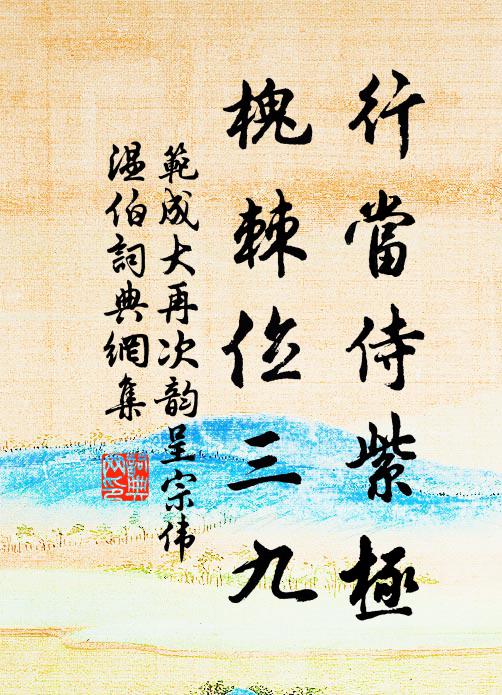 行當侍紫極
槐棘位三九
範成大再次韵呈宗伟
温伯詞典網集
詞典